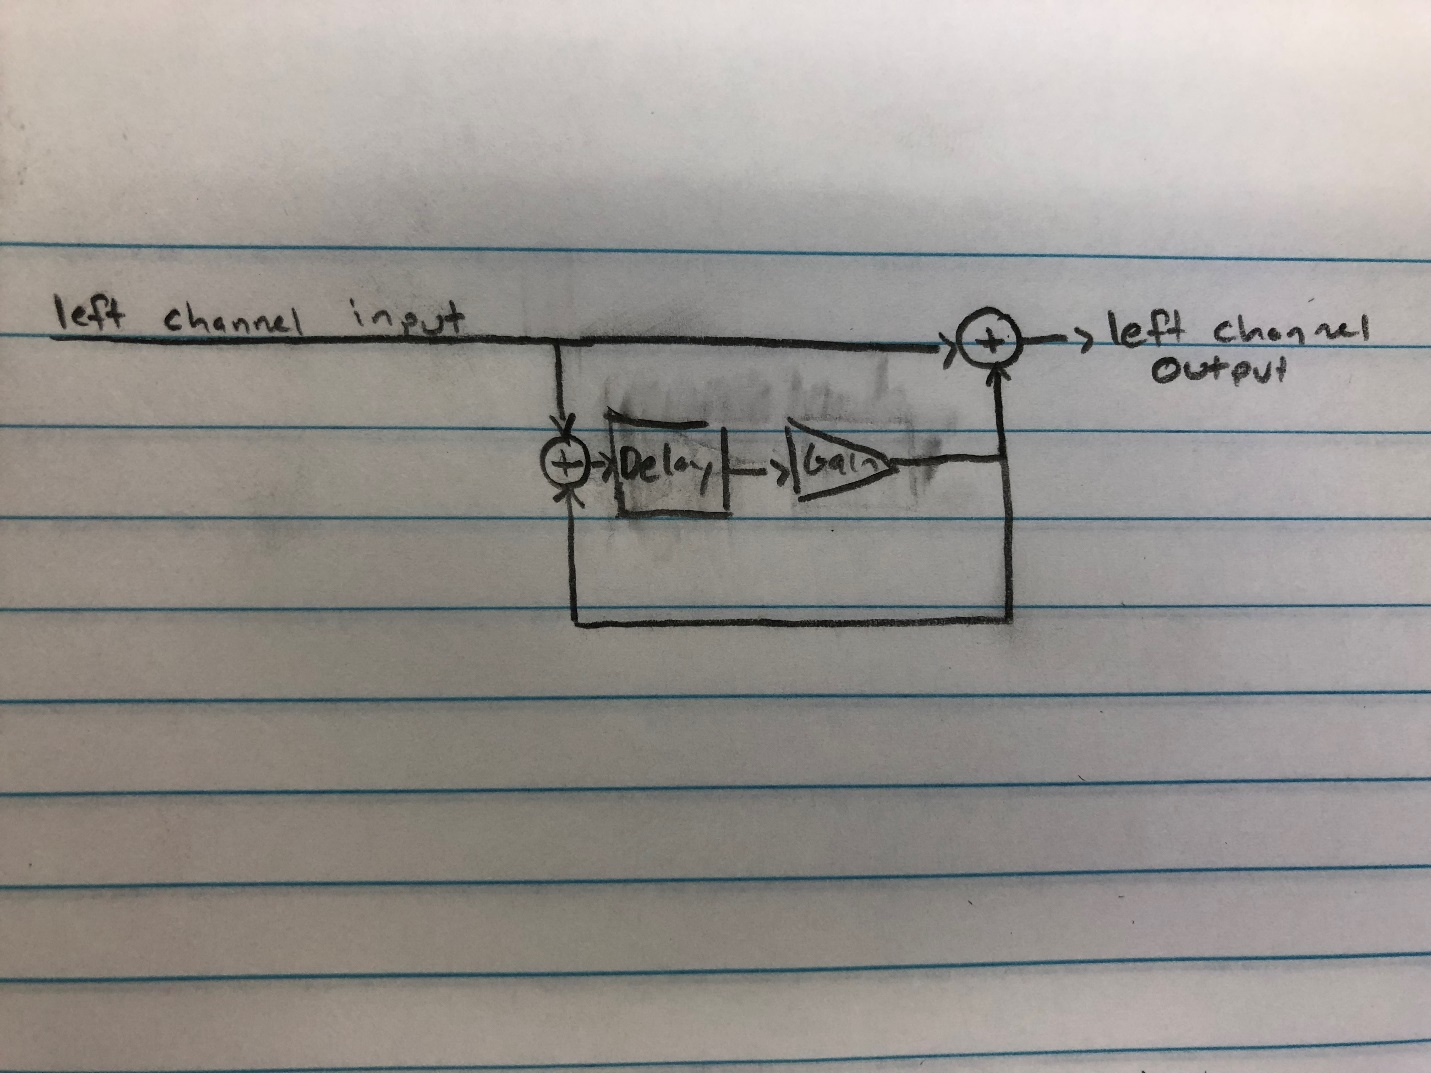 left channel input
+
left channel
output
+
Delay
Gain